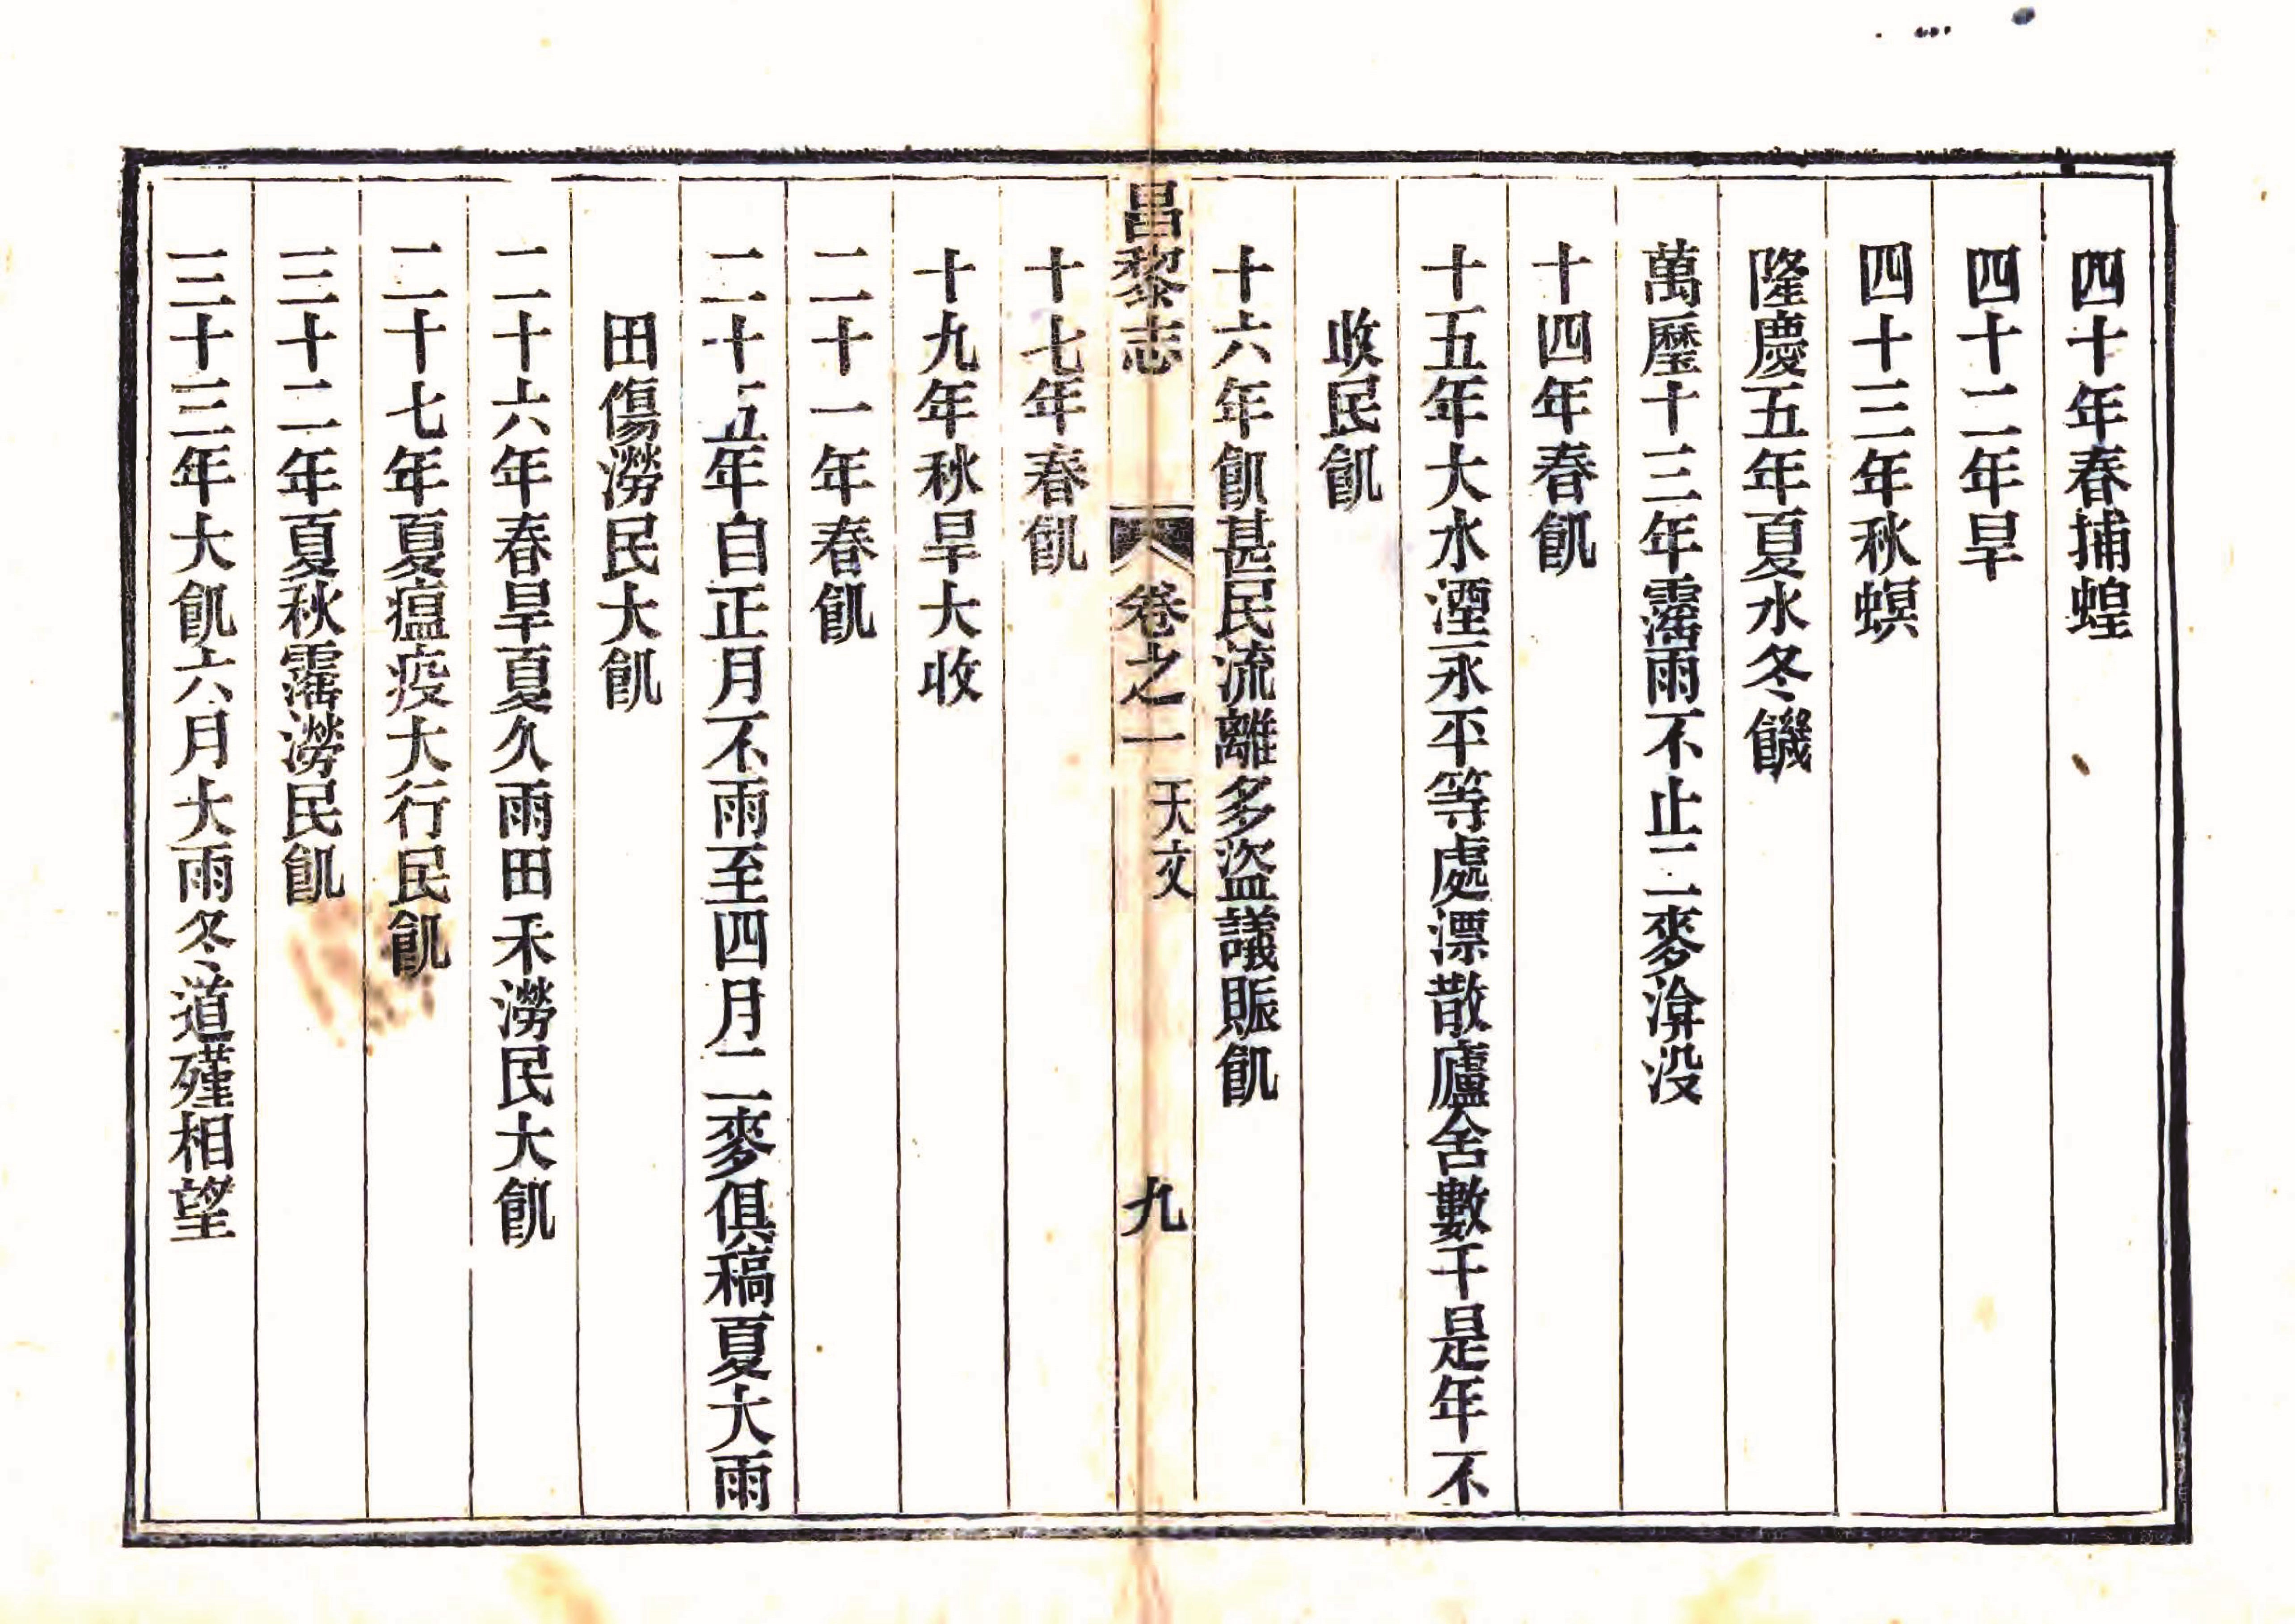 四十年春捕蝗
四十二年旱
四十三年秋螟
隆慶五年夏水冬饑
萬曆十三年霪雨不止二麥渰没
十四年春飢
十五年大水湮永平等處漂散廬舍數千是年不
收民飢
十六年飢甚民流離多盜議賑飢
昌黎志 卷之一 天文 九
十七年春飢
十九年秋旱大收
二十一年春飢
二十五年自正月不雨至四月二麥俱稿夏大雨
田傷澇民大飢
二十六年春旱夏久雨田禾澇民大飢
二十七年夏瘟疫大行民飢
三十二年夏秋霪澇民飢
三十三年大飢六月大雨冬道殣相望